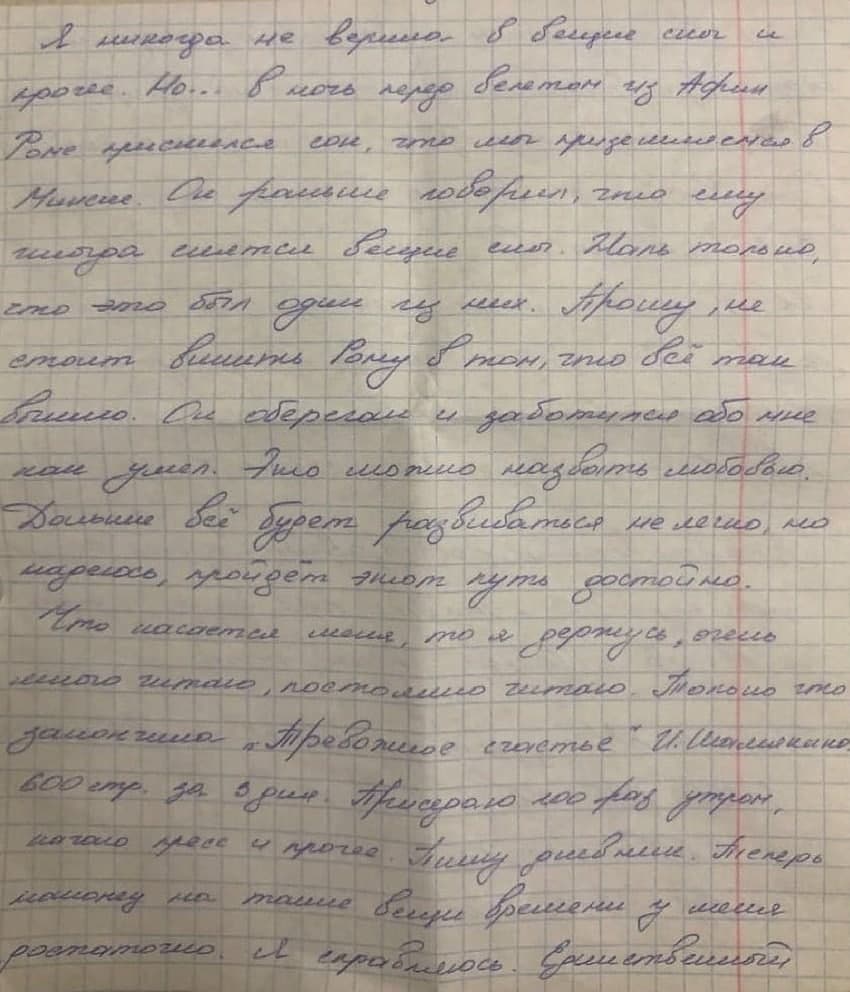 Я никогда не верила в вещие сны и
прочее. Но... в ночь перед вылетом из Афин
Роме приснился сон, что мы приземляемся в
Минске. Он раньше говорил, что ему
иногда снятся вещие сны. Жаль только,
что это был один из них. Прошу, не
стоит винить Рому в том, что всё так
вышло. Он оберегал и заботился обо мне
как умел. Это можно назвать любовью.
Дальше всё будет развиваться не легко, но
надеюсь, пройдёт этот путь достойно.
Что касается меня, то я держусь, очень
много читаю, постоянно читаю. Только что
закончила „Тревожное счастье" И. Шамякина.
600 стр. за 3 дня. Приседаю 100 раз утром,
качаю пресс и прочее. Пишу дневник. Теперь
наконец на такие вещи времени у меня
достаточно. Я справляюсь. Единственный